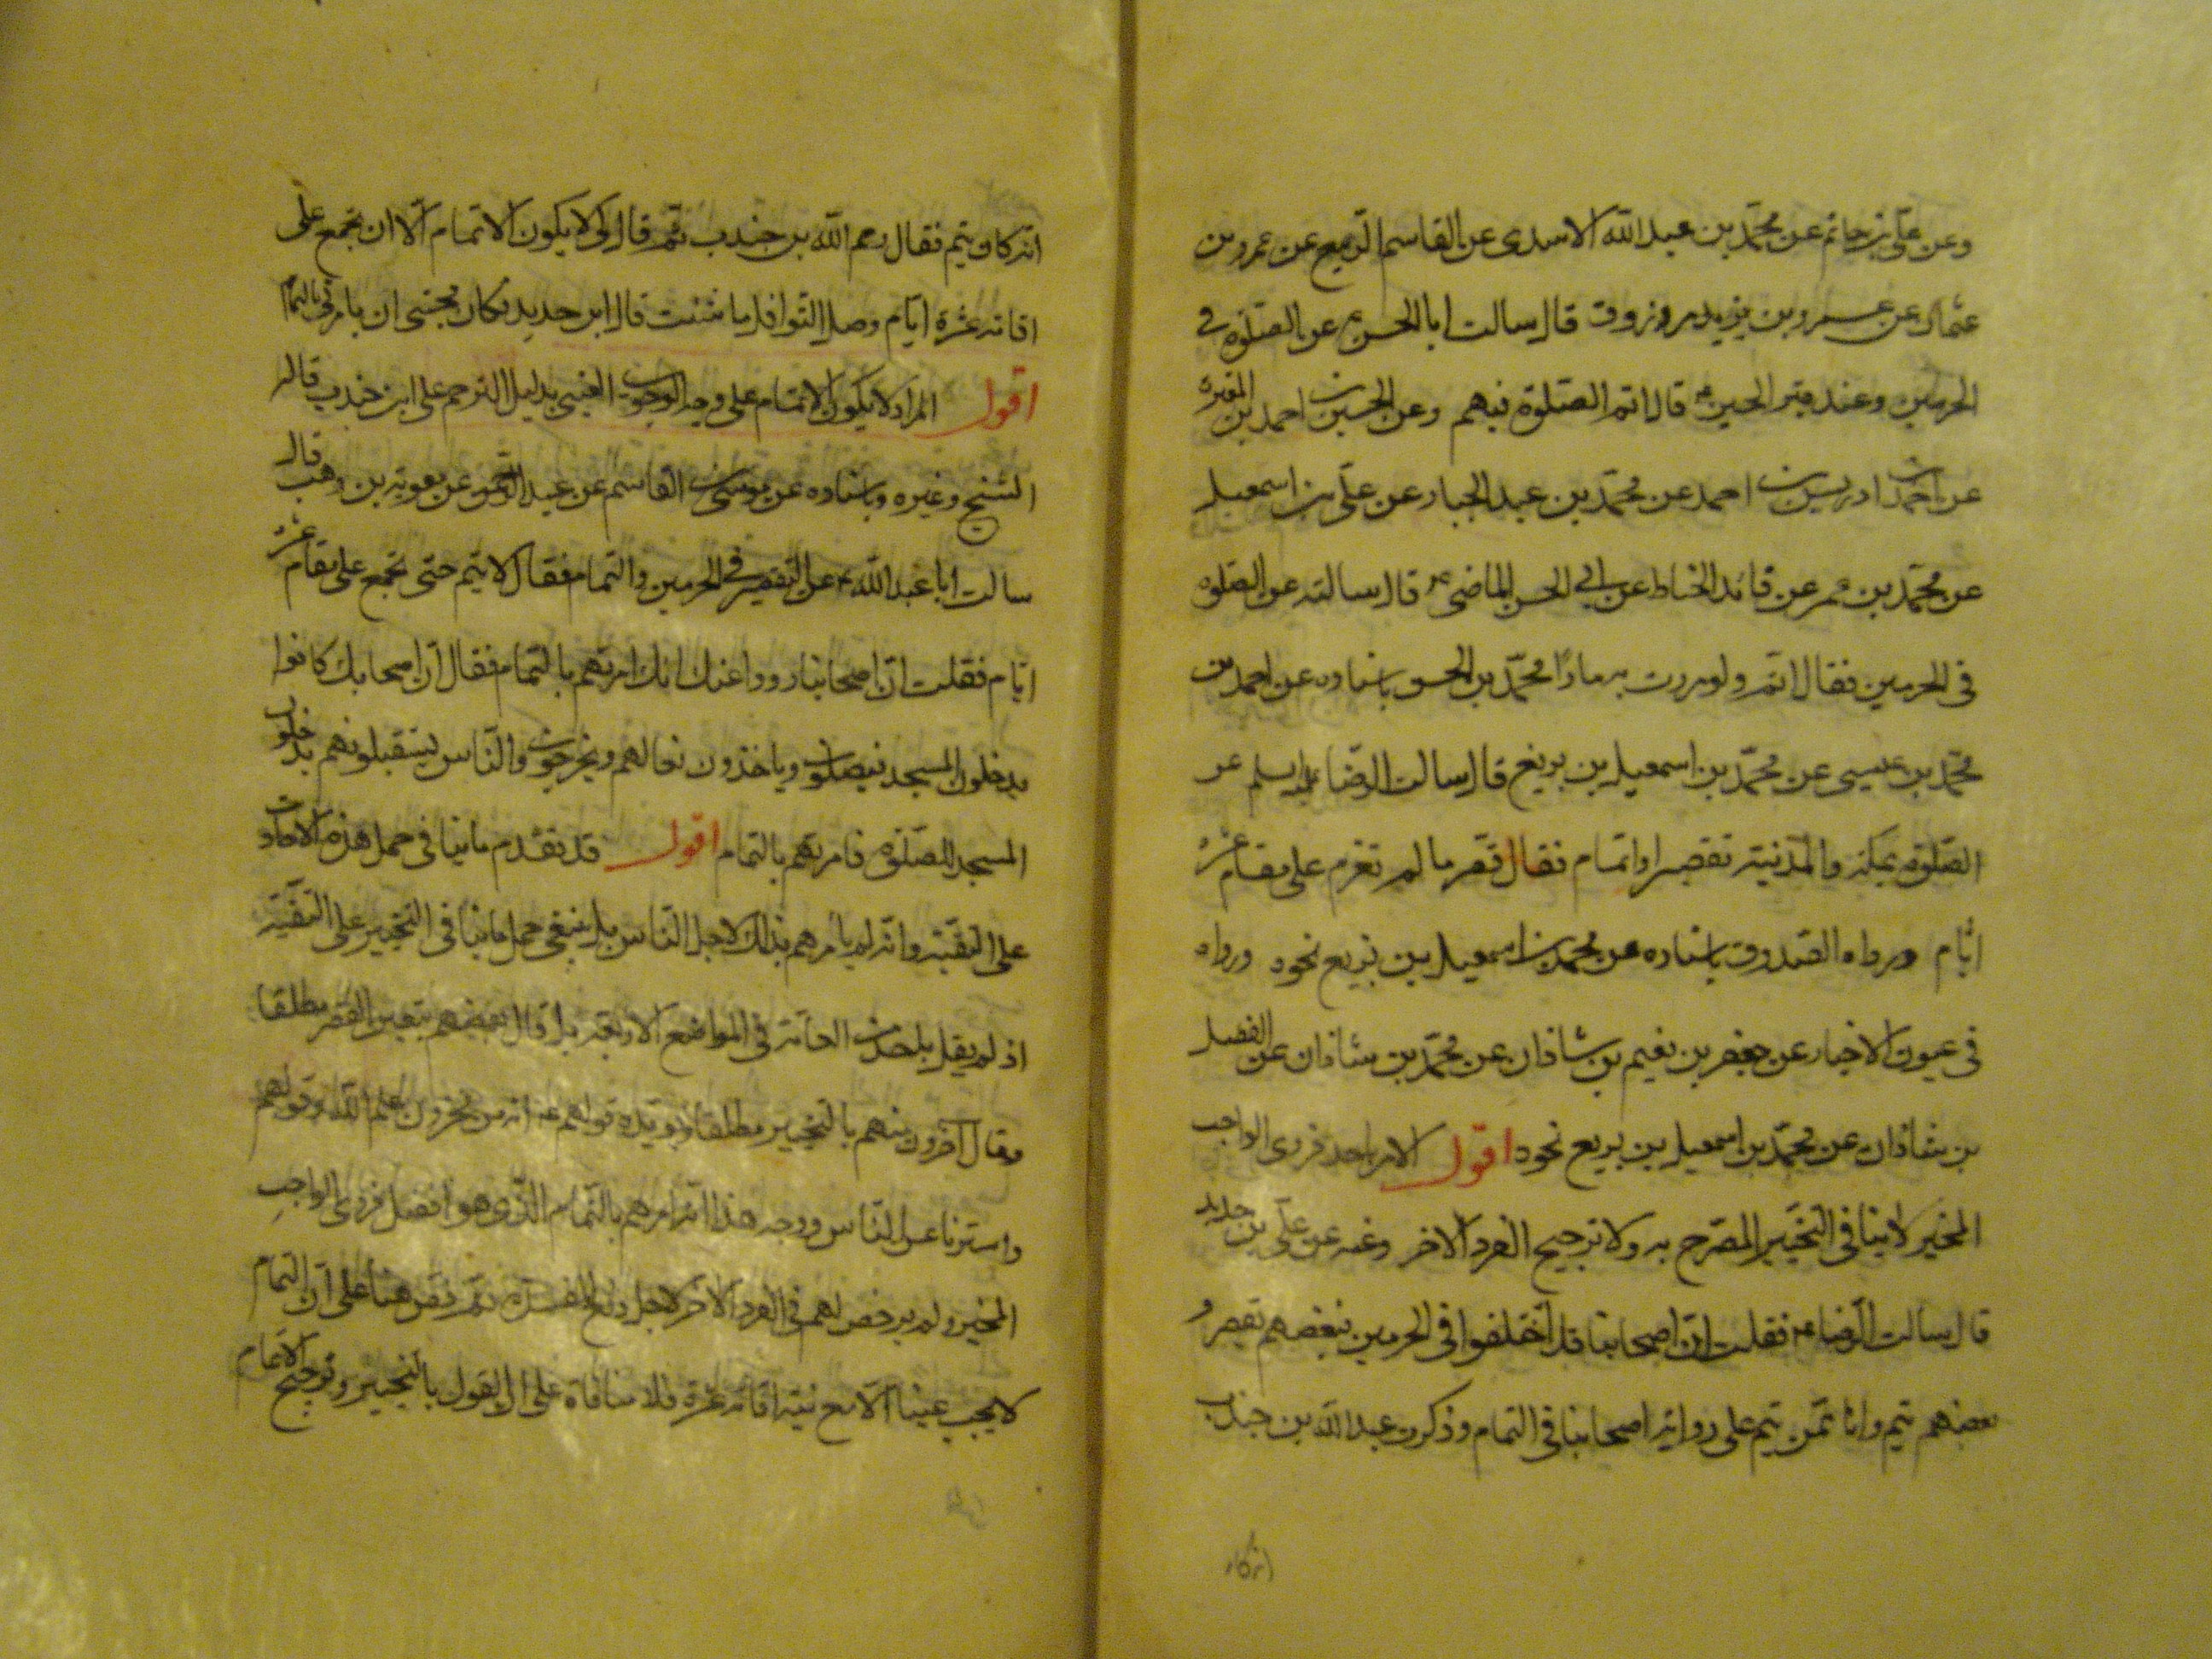 وعن علی بن حاتم عن محمد بن عبد الله الاسدی عن القاسم الربیع عن عمرو بن
عثمان عن عمرو بن مرزوق قال سالت ابا الحسن ع عن الصلوة فی
الحرمین وعند قبر الحسین ع قال اتم الصلوة فیهم وعن الحسین بن احمد بن المغیرة
عن احمد بن ادریس بن احمد عن محمد بن عبد الجبار عن علی بن اسمعیل
عن محمد بن عمر عن قائد الخیاط عن ابی الحسن الماضی ع قال سالته عن الصلوة
فی الحرمین فقال اتم ولو مررت به مارّا محمد بن الحسن باسناده عن احمد بن
محمد بن عیسی عن محمد بن اسمعیل بن بزیع قال سالت الرضا علیه السلم عن
الصلوة بمکة والمدینة تقصیر او اتمام فقال قصر ما لم تعزم علی مقام عشرة
ایّام ورواه الصدوق باسناده عن محمد بن اسمعیل بن بزیع نحوه ورواه
فی عیون الاخبار عن جعفر بن نعیم بن شاذان عن محمد بن شاذان عن الفضل
بن شاذان عن محمد بن اسمعیل بن بزیع نحوه اقول الامر باحد فردی الواجب
المخیر لا ینافی التخییر المصرح به ولا ترجیح الفرد الاخر وعنه عن علی بن حدید
قال سالت الرضا ع فقلت ان اصحابنا قد اختلفوا فی الحرمین فبعضهم یقصر و
بعضهم یتم وانا ممن یتم علی روایة اصحابنا فی التمام وذکرت عبد الله بن جندب
انه کا
انه کان یتم فقال رحم الله بن جندب ثم قال لی لا یکون الاتمام الا ان تجمع علی
اقامة عشرة ایّام وصل النوافل ما شئت قال ابن حدید وکان محبتی ان یامرنی بالتمام
اقول المراد لا یکون الاتمام علی وجه الوجوب العینی بدلیل الترحم علی ابن جندب قاله
الشیخ وغیره وباسناده عن موسی بن القاسم عن عبد الرحمن عن معویة بن وهب قال
سالت ابا عبد الله ع عن التقصیر فی الحرمین والتمام فقال لا یتم حتی تجمع علی مقام عشرة
ایّام فقلت ان اصحابنا رووا عنک انک امرتهم بالتمام فقال ان اصحابک کانوا
یدخلون المسجد فیصلون ویاخذون نعالهم ویخرجون والناس یستقبلونهم یدخلون
المسجد للصلوة فامرتهم بالتمام اقول قد تقدم ما ینافی حمل هذه الاحادیث
علی التقیة وانه لم یأمرهم بذلک لاجل الناس بل ینبغی حمل ما ینافی التخییر علی التقیة
اذ لم یقل به احد من العامة فی المواضع الاربعة بل قال بعضهم بتعین القصر مطلقا
وقال آخرون منهم بالتخییر مطلقا ویؤیده قولهم ع انه من مخزون علم الله وقولهم
واسترنا عن الناس ووجه هذا انه امرهم بالتمام الذی هو افضل فردی الواجب
المخیر ولم یرخص لهم فی الفرد الاخر لاجل دفع المفسدة ثم نص هنا علی ان التمام
لا یجب عینا الا مع نیة اقامة عشرة فلا منافاة علی ان القول بالتخییر وترجیح الاتمام